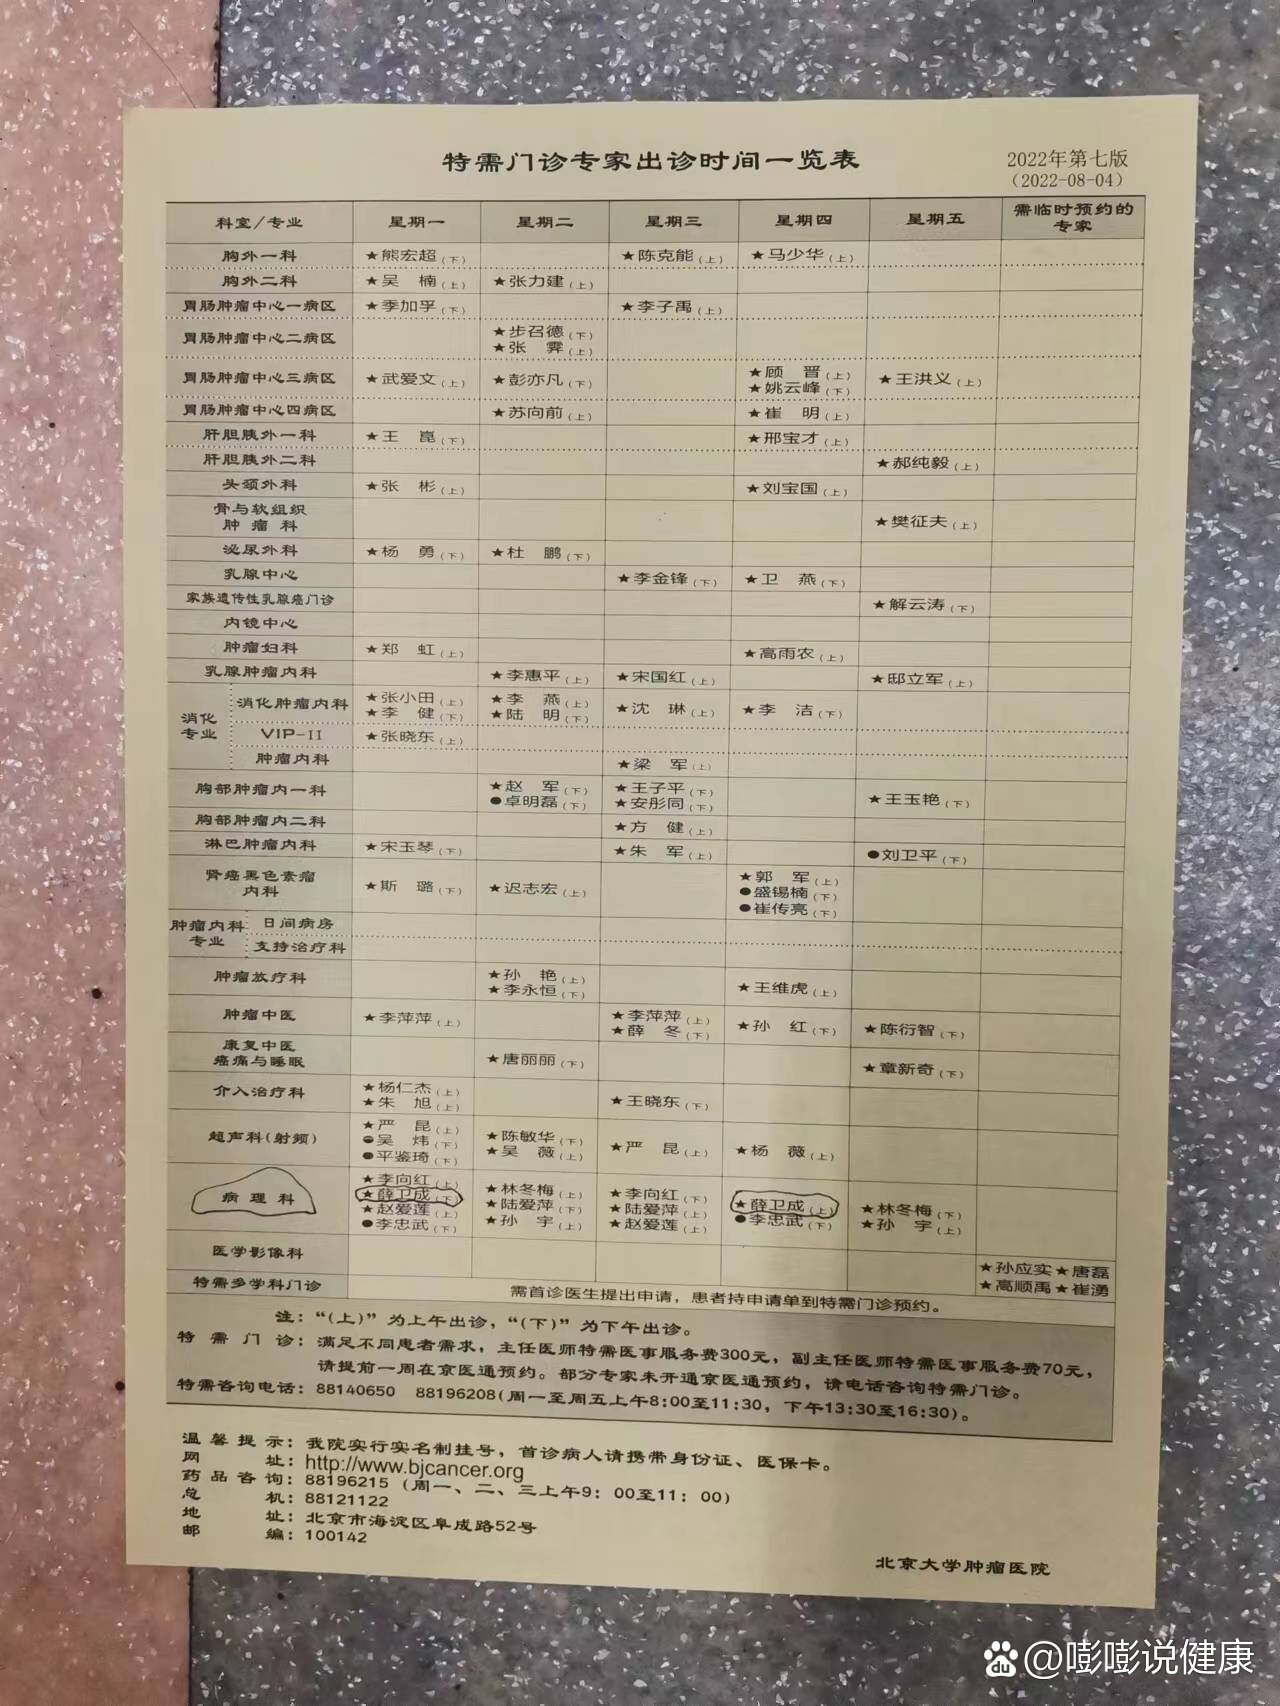 特需门诊专家出诊时间一览表
2022年第七版
（2022-08-04）
科室/专业 星期一 星期二 星期三 星期四 星期五 需临时预约的专家
胸外一科 ★熊宏超（下） ★陈克能（上） ★马少华（上）
胸外二科 ★吴 楠（上） ★张力建（上）
胃肠肿瘤中心一病区 ★季加孚（下） ★李子禹（上）
胃肠肿瘤中心二病区 ★步召德（下） ★张 霁（上）
胃肠肿瘤中心三病区 ★武爱文（上） ★彭亦凡（下） ★顾 晋（上） ★姚云峰（下） ★王洪义（上）
胃肠肿瘤中心四病区 ★苏向前（上） ★崔 明（上）
肝胆胰外一科 ★王 崑（下） ★邢宝才（上）
肝胆胰外二科 ★郝纯毅（上）
头颈外科 ★张 彬（上） ★刘宝国（上）
骨与软组织肿瘤科 ★樊征夫（上）
泌尿外科 ★杨 勇（下） ★杜 鹏（下）
乳腺中心 ★李金锋（下） ★卫 燕（下）
家族遗传性乳腺癌门诊 ★解云涛（下）
内镜中心
肿瘤妇科 ★郑 虹（上） ★高雨农（上）
乳腺肿瘤内科 ★李惠平（上） ★宋国红（上） ★邸立军（上）
消化专业 消化肿瘤内科 ★张小田（上） ★李 健（下） ★李 燕（上） ★陆 明（下） ★沈 琳（上） ★李 洁（下）
VIP-II ★张晓东（上）
肿瘤内科 ★梁 军（上）
胸部肿瘤内一科 ★赵 军（下） ●卓明磊（下） ★王子平（下） ★安彤同（下） ★王玉艳（下）
胸部肿瘤内二科 ★方 健（上）
淋巴肿瘤内科 ★宋玉琴（下） ★朱 军（上） ●刘卫平（下）
肾癌黑色素瘤内科 ★斯 璐（下） ★迟志宏（上） ★郭 军（上） ●盛锡楠（下） ●崔传亮（下）
肿瘤内科专业 日间病房
支持治疗科
肿瘤放疗科 ★孙 艳（上） ★李永恒（下） ★王维虎（上）
肿瘤中医 ★李萍萍（上） ★李萍萍（上） ★薛 冬（下） ★孙 红（下） ★陈衍智（下）
康复中医癌痛与睡眠 ★唐丽丽（下） ★章新奇（下）
介入治疗科 ★杨仁杰（上） ★朱 旭（上） ★王晓东（下）
超声科(射频) ★严 昆（上） 吴 炜（下） ●平鉴琦（下） ★陈敏华（下） ★吴 薇（上） ★严 昆（上） ★杨 薇（上）
病理科 ★李向红（上） ★薛卫成（下） ★赵爱莲（上） ●李忠武（下） ★林冬梅（上） ★陆爱萍（下） ★孙 宇（上） ★李向红（下） ★陆爱萍（上） ★赵爱莲（上） ★薛卫成（上） ●李忠武（下） ★林冬梅（下） ★孙 宇（上）
医学影像科 ★孙应实★唐磊 ★高顺禹★崔湧
特需多学科门诊 需首诊医生提出申请，患者持申请单到特需门诊预约。
注：“（上）”为上午出诊，“（下）”为下午出诊。
特需门诊：满足不同患者需求，主任医师特需医事服务费300元，副主任医师特需医事服务费70元，
请提前一周在京医通预约。部分专家未开通京医通预约，请电话咨询特需门诊。
特需咨询电话：88140650 88196208(周一至周五上午8:00至11:30，下午13:30至16:30)。
温馨提示：我院实行实名制挂号，首诊病人请携带身份证、医保卡。
网 址：http://www.bjcancer.org
药品咨询：88196215（周一、二、三上午9：00至11：00）
总 机：88121122
地 址：北京市海淀区阜成路52号
邮 编：100142
北京大学肿瘤医院
Bai du @嘭嘭说健康